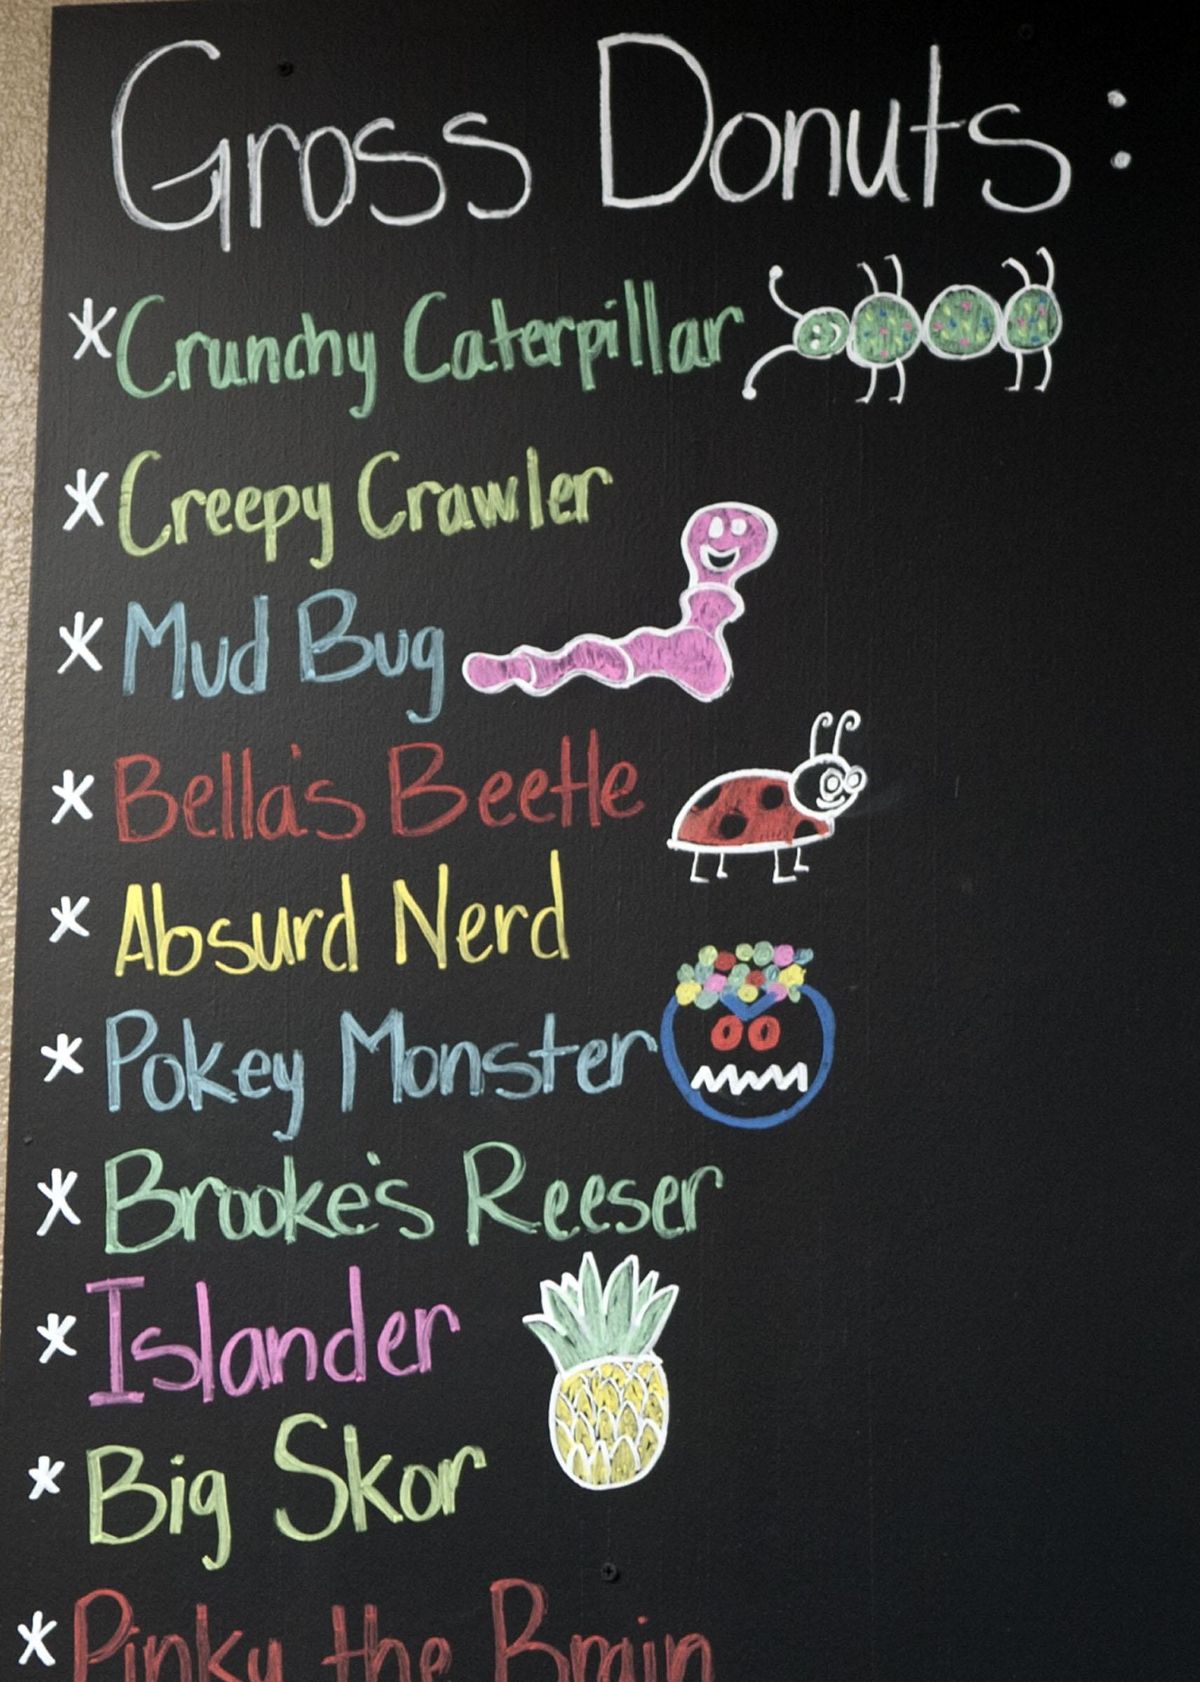 Gross Donuts:
* Crunchy Caterpillar
* Creepy Crawler
* Mud Bug
* Bella's Beetle
* Absurd Nerd
* Pokey Monster
* Brooke's Reeser
* Islander
* Big Skor
* Pinky the Brain